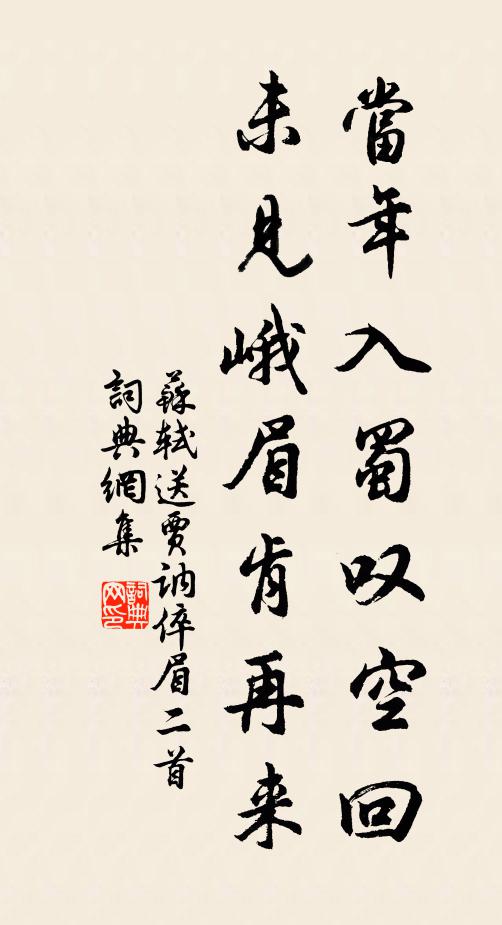 當年入蜀叹空回
未見峨眉肯再来
蘇軾送賈訥倅眉二首
詞典網集
詞典网印